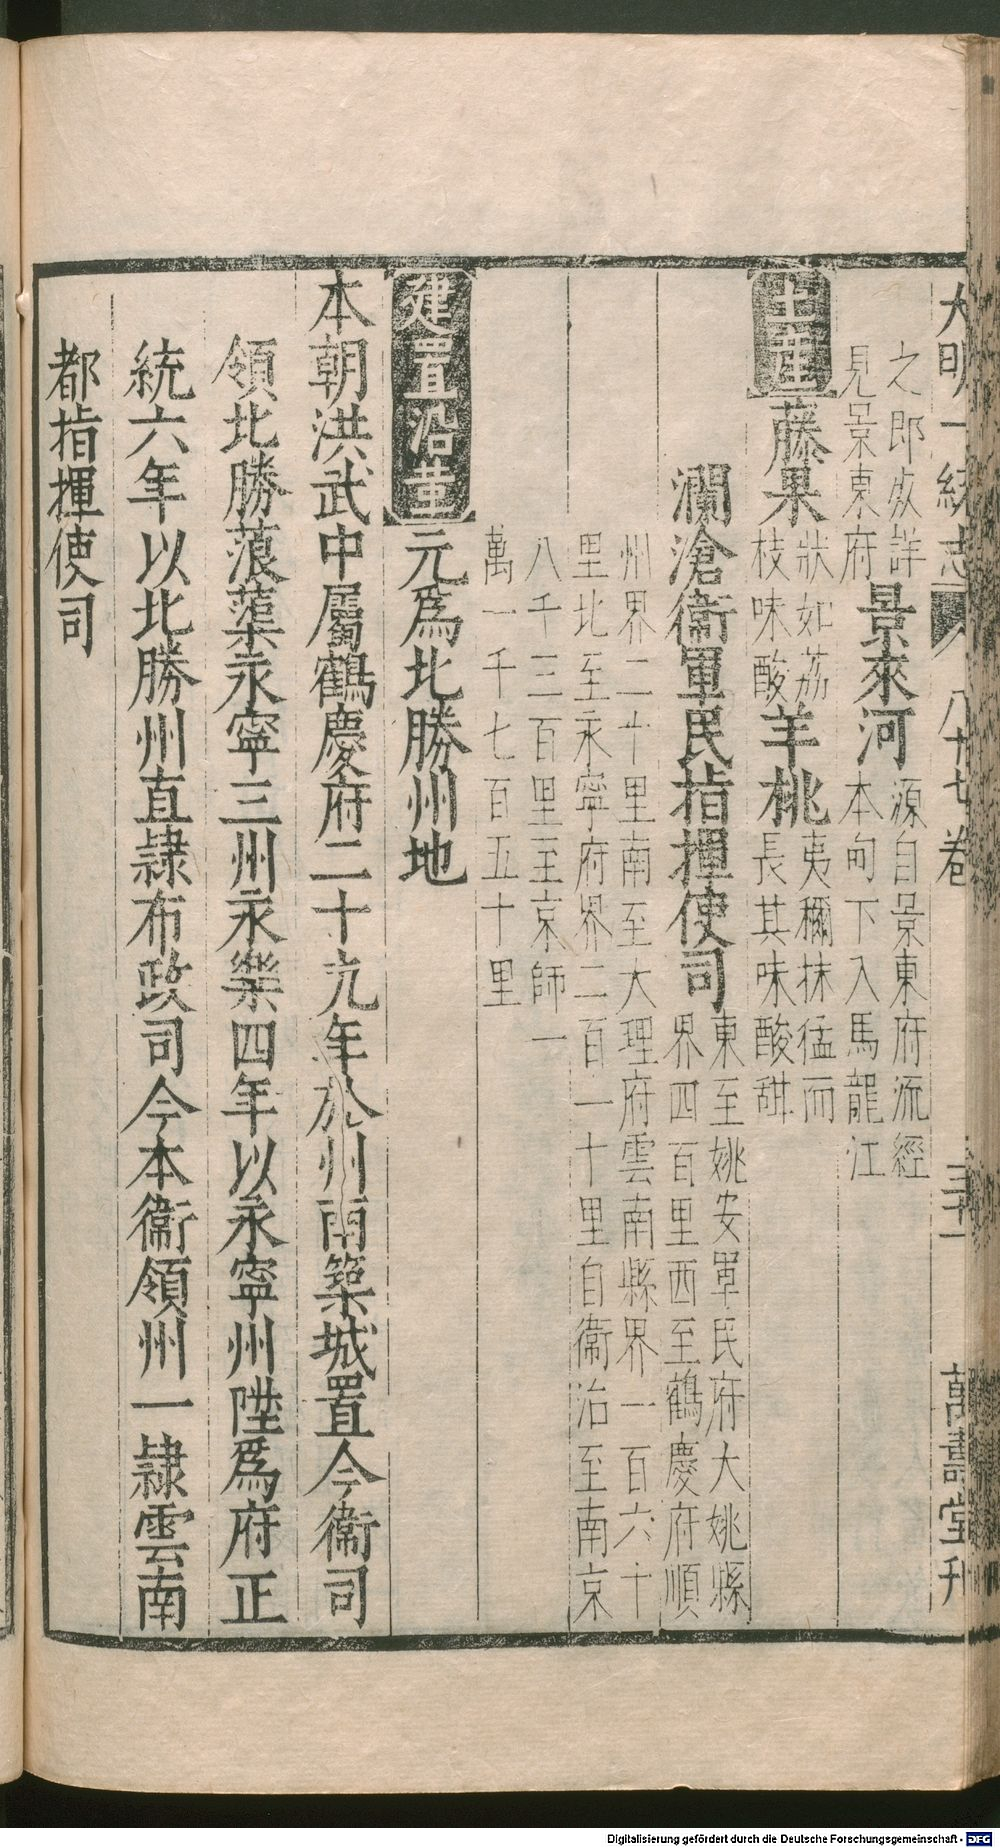 大明一統志 八十七卷 三十一 萬壽堂刊
之即此詳
見景東府
景來河
源自景東府流經
本甸下入馬龍江
土産
藤果
狀如荔
枝味酸
羊桃
夷穪抹猛而
長其味酸甜
瀾滄衞軍民指揮使司
東至姚安軍民府大姚縣
界四百里西至鶴慶府順
州界二十里南至大理府雲南縣界一百六十
里北至永寧府界二百一十里自衞治至南京
八千三百里至京師一
萬一千七百五十里
建置沿革
元爲北勝州地
本朝洪武中屬鶴慶府二十九年於州南築城置今衞司
領北勝蒗蕖永寧三州永樂四年以永寧州陞爲府正
統六年以北勝州直隷布政司今本衞領州一隷雲南
都指揮使司
Digitalisierung gefördert durch die Deutsche Forschungsgemeinschaft - DFG